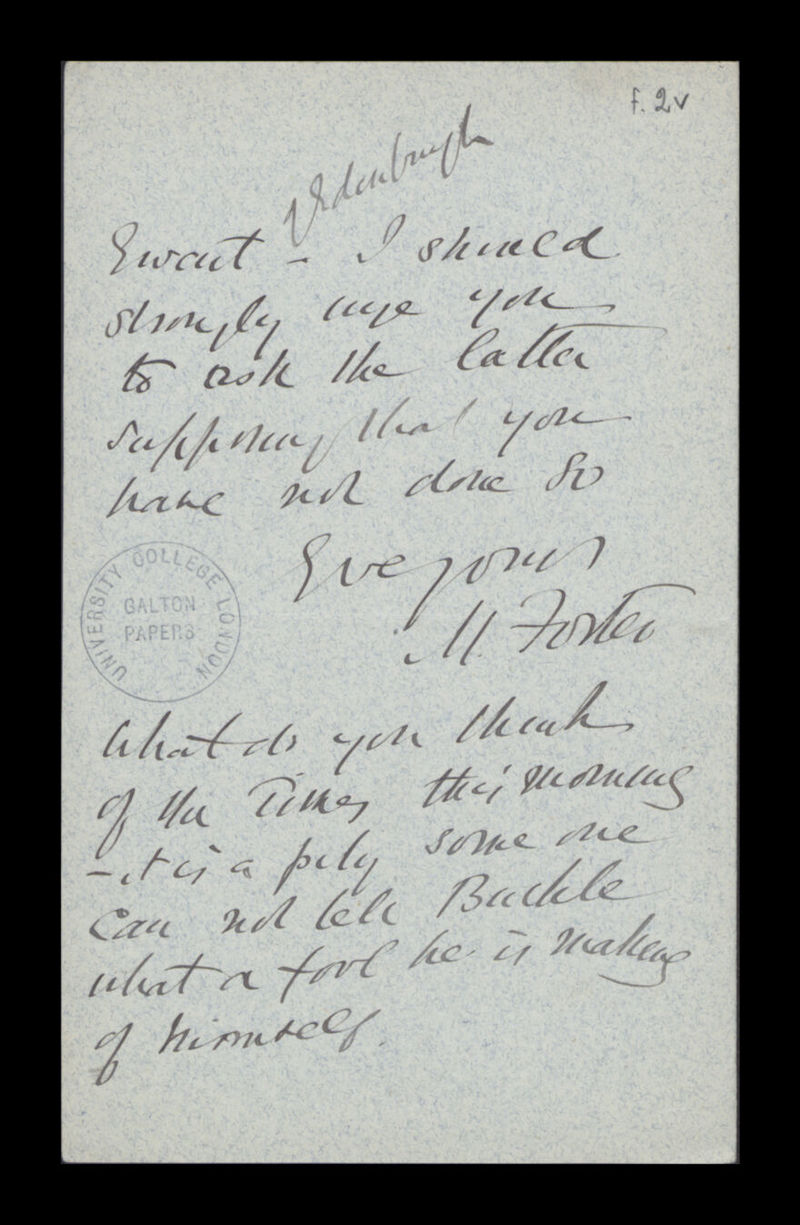 f. 2v
Edenburgh
Ewart - I should
strongly urge you
to ask the latter
supposing that you
have not done so
Ever yours
M. Foster
UNIVERSITY COLLEGE LONDON
GALTON
PAPERS
What do you think
of the Times this morning
- it is a pity some one
can not tell Buckle
what a fool he is making
of himself.